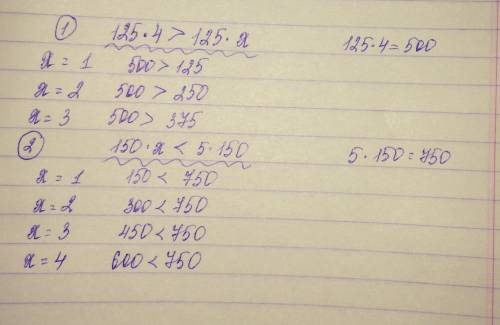 1 125·4 > 125·x 125·4=500
x = 1 500 > 125
x = 2 500 > 250
x = 3 500 > 375
2 150·x < 5·150 5·150=750
x = 1 150 < 750
x = 2 300 < 750
x = 3 450 < 750
x = 4 600 < 750